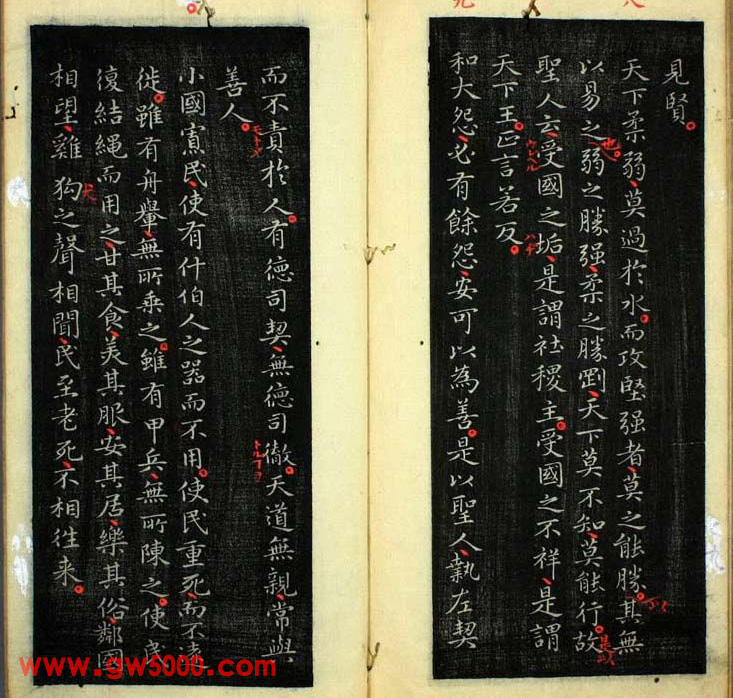 見賢
天下柔弱莫過於水而攻堅强者莫之能勝其無
以易之弱之勝强柔之勝剛天下莫不知莫能行故
聖人云受國之垢是謂社稷主受國之不祥是謂
天下王正言若反
和大怨必有餘怨安可以為善是以聖人執左契
而不責於人有德司契無德司徹天道無親常與
善人
小國寡民使有什伯人之器而不用使民重死而不遠
徙雖有舟轝無所乘之雖有甲兵無所陳之使民
復結繩而用之甘其食美其服安其居樂其俗鄰國
相望雞狗之聲相聞民至老死不相往来
www.gw5000.com